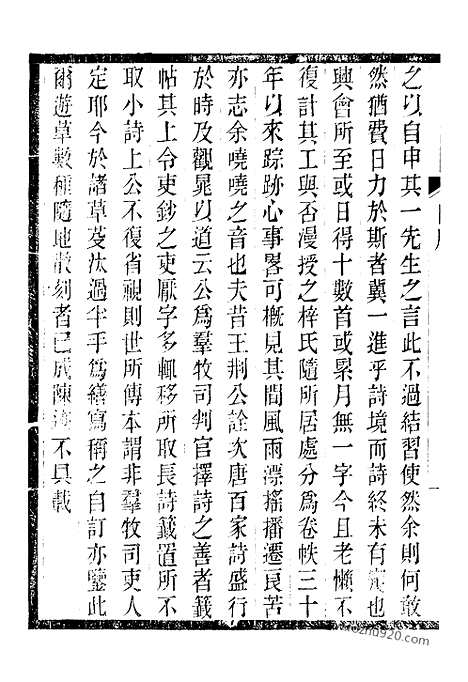 之以自申其一先生之言此不過結習使然余則何敢
然猶費日力於斯者冀一進乎詩境而詩終未有也
興會所至或日得十數首或累月無一字今且老懶不
復計其工與否漫授之梓氏隨所居處分為卷帙三十
年以來踪跡心事畧可概見其間風雨漂搖播遷良苦
亦志余嘵嘵之音也夫昔王荆公詮次唐百家詩盛行
於時及觀晁以道云公爲羣牧司判官擇詩之善者籤
帖其上令吏鈔之吏厭字多輒移所取長詩籤置所不
取小詩上公不復省視則世所傳本謂非羣牧司吏人
定耶今於諸草芟汰過半手爲繕寫稱之自訂亦鑒此
爾遊草數種隨地散刻者已成陳不具載